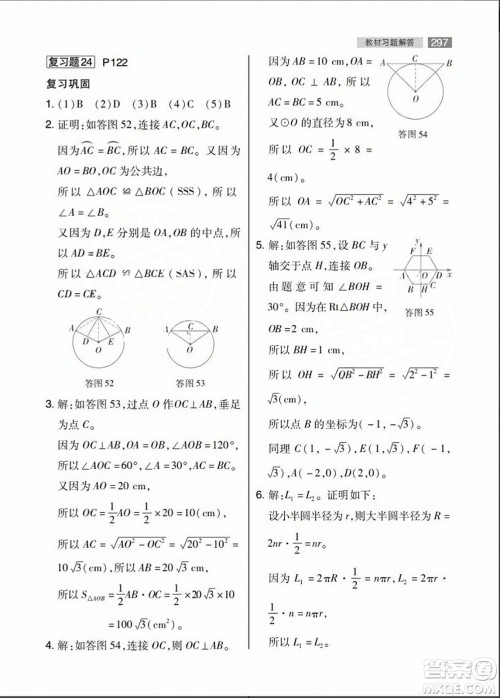 教材习题解答 297
复习题24 P122
复习巩固
1. (1)B (2)B (3)D (4)C (5)D
2. 证明:如答图 52,连接 AC,OC,BC.
因为 AC͡ = BC͡,所以 AC = BC. 又因为
AO = BO,OC 为公共边,
所以 △AOC ≌ △BOC (SSS),所以
∠A = ∠B.
又因为 D,E 分别是 OA,OB 的中点,所
以 AD = BE.
所以 △ACD ≌ △BCE (SAS),所以
CD = CE.
C
A B
D E
O
答图 52
C
A B
O
答图 53
3. 解:如答图 53,过点 O 作 OC⊥AB,垂足
为点 C.
因为 OC⊥AB,∠AOB = 120°,
所以∠AOC = 60°,∠OAC = 30°.
又因为 AO = 20 cm,
所以 OC = 1/2 AO = 1/2 × 20 = 10(cm).
所以 AC = √(AO² − OC²) = √(20² − 10²) =
10√3(cm).
所以 S△AOB = 1/2 × 10 × 10√3 × 2 =
100√3(cm²).
4. 解:如答图 54,连接 OC,则 OC⊥AB.
因为 AB = 10 cm,
OA = OB,
所以 AC = BC = 5 cm.
又⊙O 的直径为 8 cm,
所以 OC = 1/2 × 8 =
4(cm).
所以 OA = √(OC² + AC²) = √(4² + 5²) =
√41(cm).
A C B
O
答图 54
5. 解:如答图 55,设 BC 与 y
轴交于点 H,连接 OB.
由题意可知∠BOH =
30°. 因为在 Rt△BOH 中,
OB = 2,
所以 BH = 1,
所以 OH = √(OB² − BH²) = √(4 − 1) =
√3,
所以点 B 的坐标为(−1,−√3).
同理 C(1,−√3),D(2,0),E(1,
√3),F(−1,√3),A(−2,0).
答图 55
6. 解:L₁ = L₂. 证明如下:
设小半圆半径为 r,则大半圆半径为 R =
2nr · 1/2 = nr.
因为 L₁ = 2πR · 1/2 = nπr,L₂ = 2πr ·
1/2 · n = nπr,
所以 L₁ = L₂.
答案圈
MXQE.COM